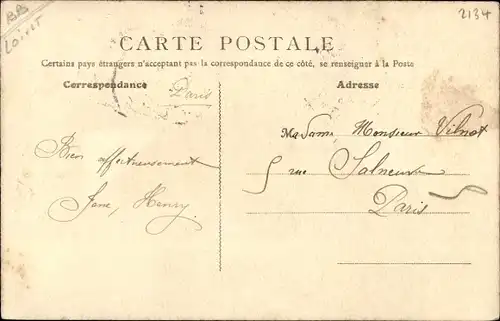 BB
Loiret
2134
CARTE POSTALE
Certains pays étrangers n'acceptant pas la correspondance de ce côté, se renseigner à la Poste
Correspondance
Paris
Adresse
Bien affectueusement
Jane, Henry
Madame Monsieur Vilnot
5 rue Salneuve
Paris